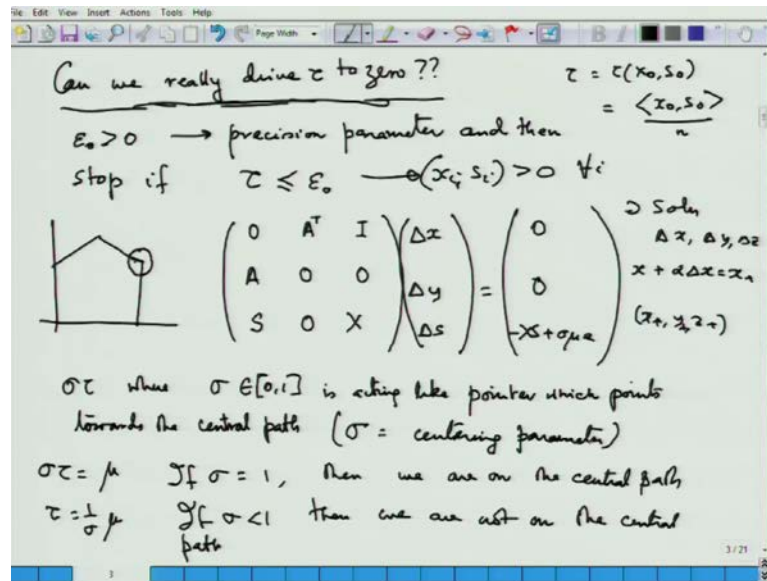 File Edit View Insert Actions Tools Help
Page Width B I
Can we really drive τ to zero ??
τ = τ(x₀, s₀)
= <x₀, s₀> / n
ε₀ > 0 → precision parameter and then
stop if τ ≤ ε₀ → (xᵢ, sᵢ) > 0 ∀i
( 0 Aᵀ I ) ( Δx ) = ( 0 )
( A 0 0 ) ( Δy ) = ( 0 )
( S 0 X ) ( Δs ) = ( -XS + σμe )
∃ Soln
Δx, Δy, Δz
x + αΔx = x₊
(x₊, y₊, z₊)
στ where σ ∈ [0,1] is acting like pointer which points
towards the central path (σ = centering parameter)
στ = μ If σ = 1, then we are on the central path
τ = 1/σ μ If σ < 1 then we are not on the central
path
3/21
3